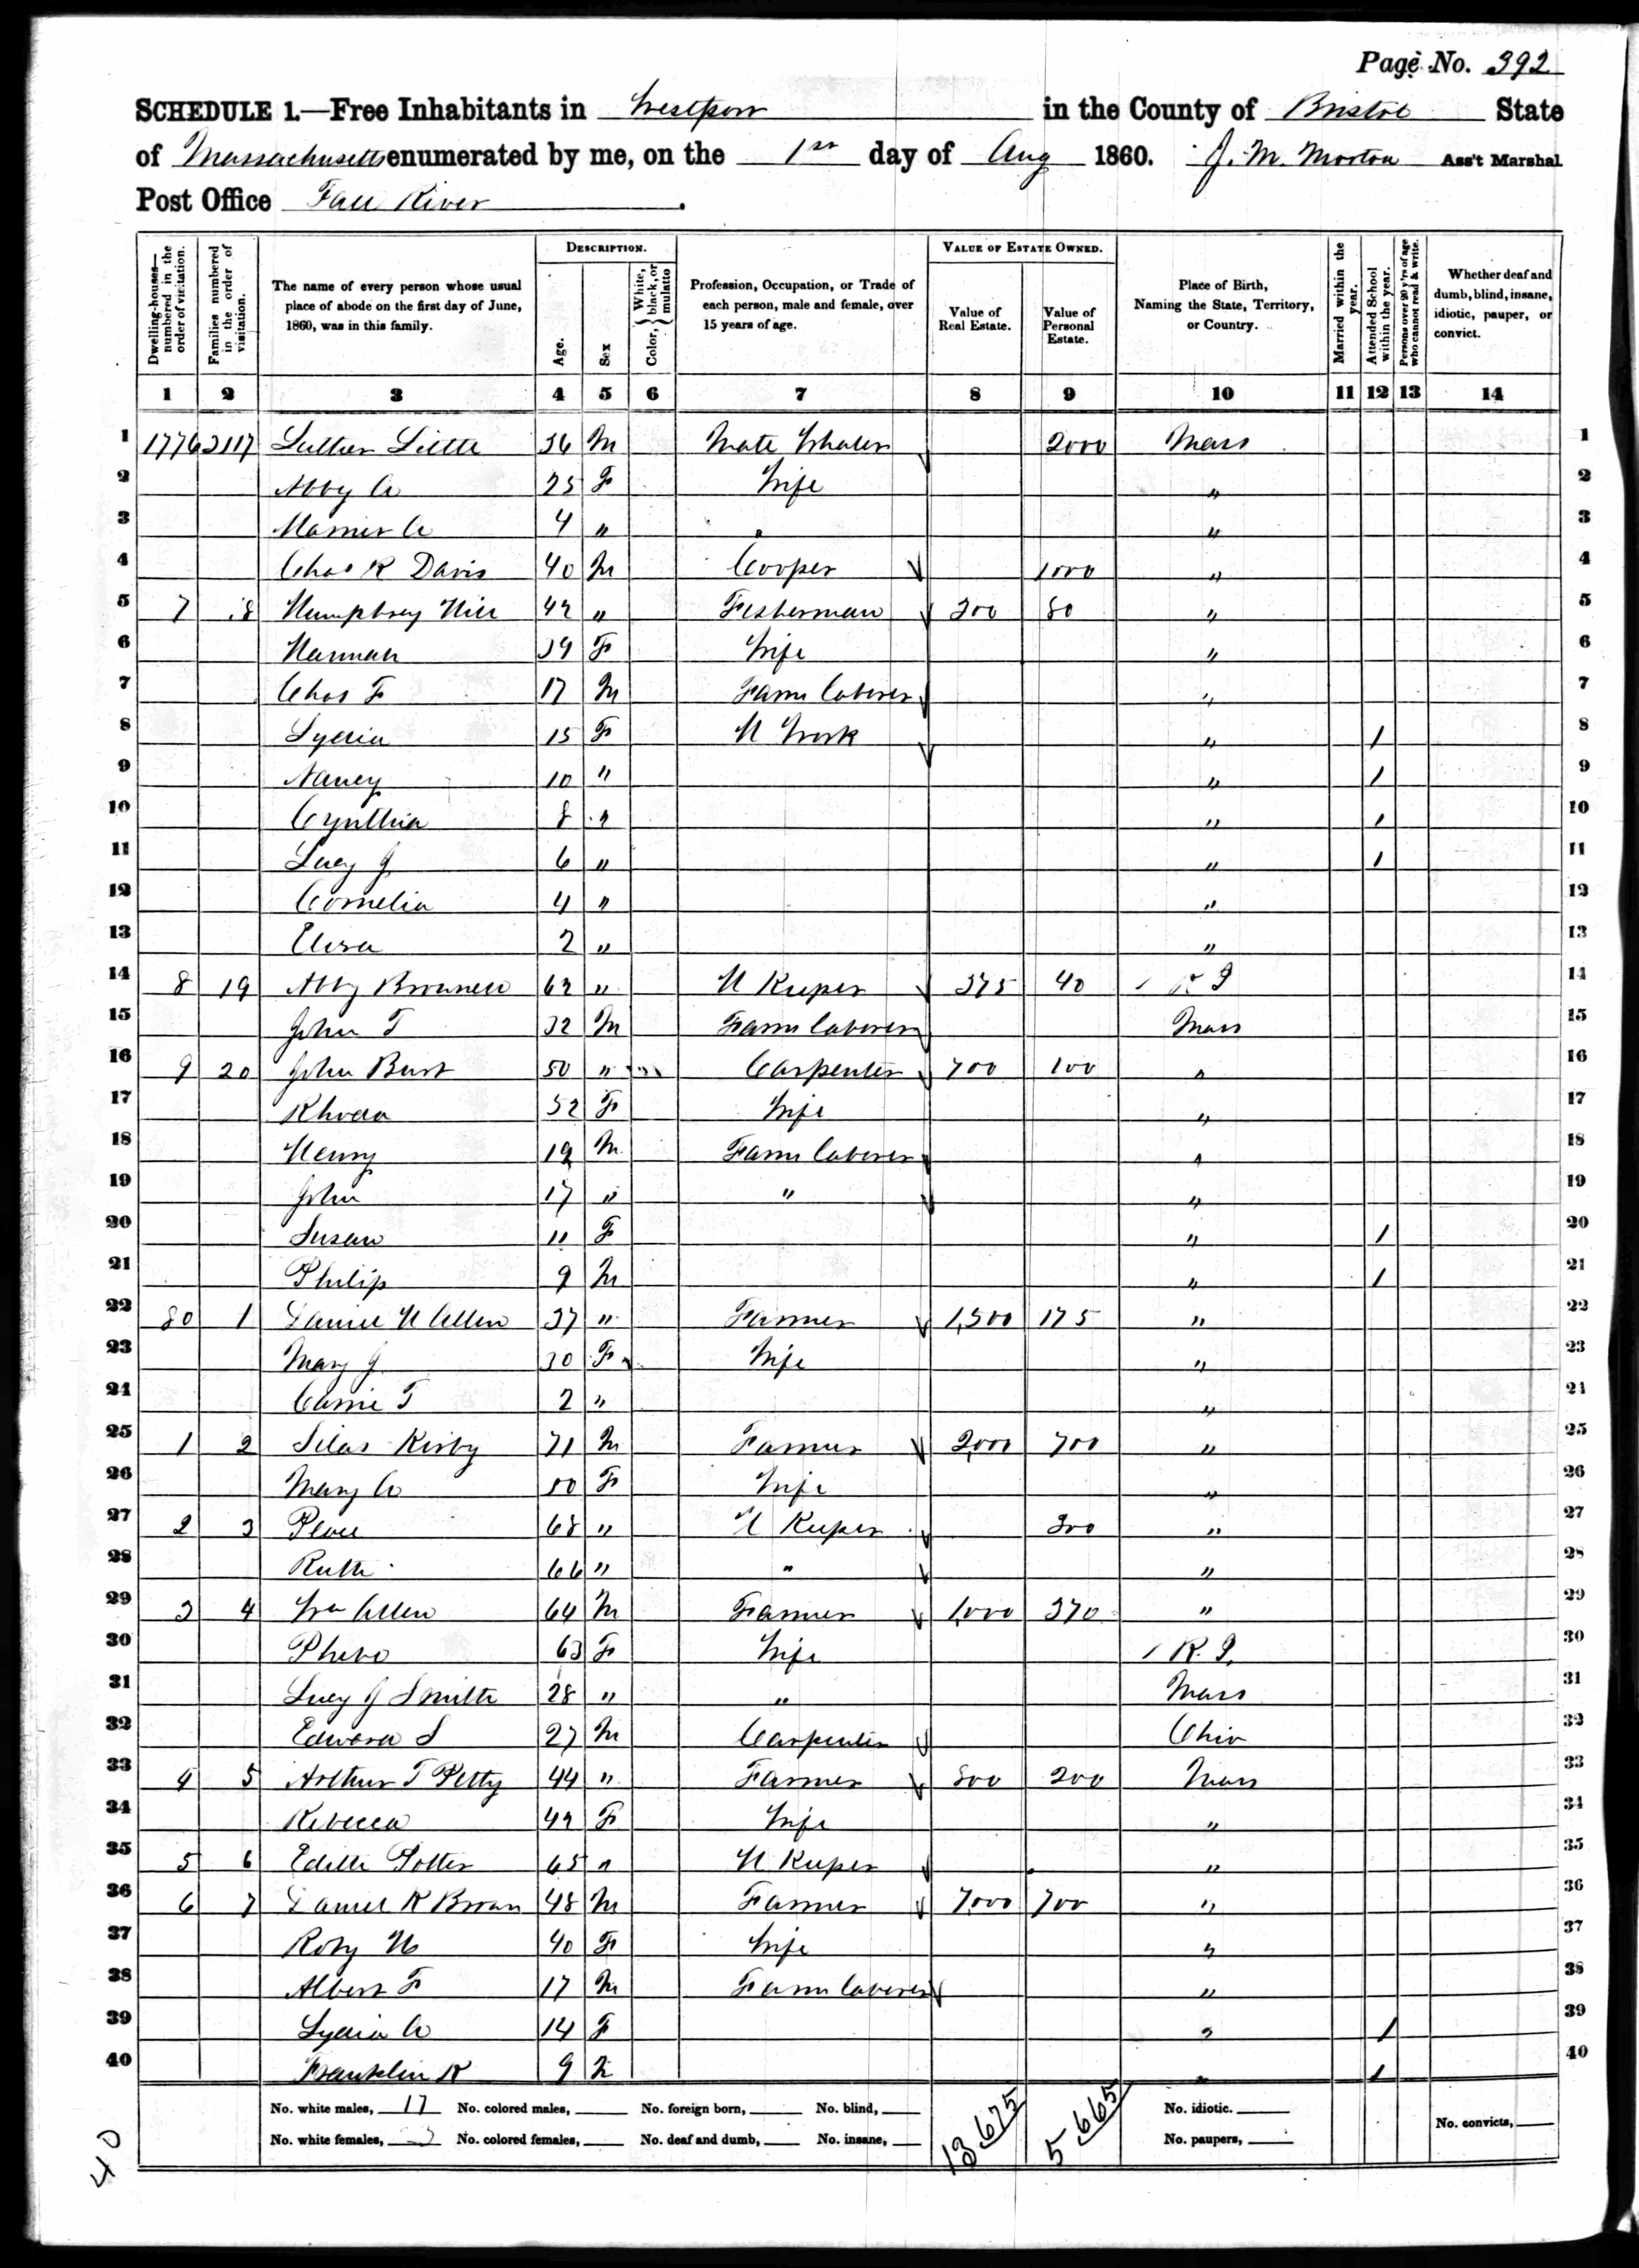 Page No. 392
SCHEDULE 1.—Free Inhabitants in Westport in the County of Bristol State
of Massachusetts enumerated by me, on the 1st day of Aug 1860. J. M. Morton Ass't Marshal
Post Office Fall River.
Dwelling-houses—numbered in the order of visitation.
Families numbered in the order of visitation.
The name of every person whose usual place of abode on the first day of June, 1860, was in this family.
DESCRIPTION.
Age.
Sex
Color, { White, black, or mulatto
Profession, Occupation, or Trade of each person, male and female, over 15 years of age.
VALUE OF ESTATE OWNED.
Value of Real Estate.
Value of Personal Estate.
Place of Birth, Naming the State, Territory, or Country.
Married within the year.
Attended School within the year.
Persons over 20 y'rs of age who cannot read & write.
Whether deaf and dumb, blind, insane, idiotic, pauper, or convict.
1 2 3 4 5 6 7 8 9 10 11 12 13 14
1 1776 2117 Luther Little 36 M Mate Whaler 2000 Mass 1
2 Abby A 25 F Wife " 2
3 A 4 " " 3
4 Chas R Davis 40 M Cooper 1000 " 4
5 7 18 Humphrey Hill 42 " Fisherman 200 80 " 5
6 Hannah 39 F Wife " 6
7 Chas F 17 M Farm laborer " 7
8 Lydia 15 F H Work " 1 8
9 Nancy 10 " " 1 9
10 Cynthia 8 " " 1 10
11 Lucy J 6 " " 1 11
12 Cornelia 4 " " 12
13 Eliza 2 " " 13
14 8 19 Abby Brownell 62 " H Keeper 375 40 R I 14
15 John T 32 M Farm laborer Mass 15
16 9 20 John Burt 50 " Carpenter 700 100 " 16
17 Rhoda 52 F Wife " 17
18 Henry 19 M Farm laborer " 18
19 John 17 " " " 19
20 Susan 11 F " 1 20
21 Philip 9 M " 1 21
22 80 1 Daniel H Allen 37 " Farmer 1,500 175 " 22
23 Mary J 30 F Wife " 23
24 Carrie T 2 " " 24
25 1 2 Silas Kirby 71 M Farmer 2,000 700 " 25
26 Mary A 50 F Wife " 26
27 2 3 68 " H Keeper 300 " 27
28 Ruth 66 " " " 28
29 3 4 Wm Allen 64 M Farmer 1,000 370 " 29
30 Phebe 63 F Wife R. I. 30
31 Lucy J Smith 28 " " Mass 31
32 Edward S 27 M Carpenter Ohio 32
33 4 5 Arthur T Petty 44 " Farmer 800 200 Mass 33
34 Rebecca 42 F Wife " 34
35 5 6 Edith Potter 65 " H Keeper " 35
36 6 7 Daniel R Brown 48 M Farmer 7,000 700 " 36
37 Roby H 40 F Wife " 37
38 Albert F 17 M Farm laborer " 38
39 Lydia A 14 F " 1 39
40 Franklin R 9 M " 1 40
No. white males, 17 No. colored males, No. foreign born, No. blind, 13,675 5,665 No. idiotic. No. convicts,
No. white females, No. colored females, No. deaf and dumb, No. insane, No. paupers,
40